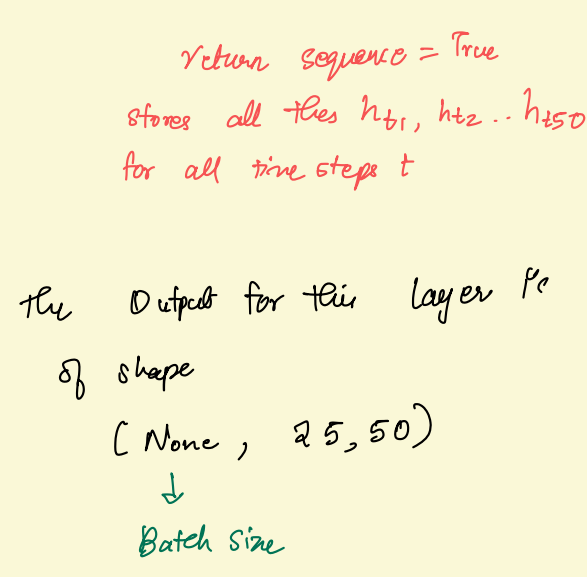 return sequence = True
stores all thes ht1, ht2 .. ht50
for all time steps t
the Output for this layer is
of shape
(None, 25,50)
↓
Batch size